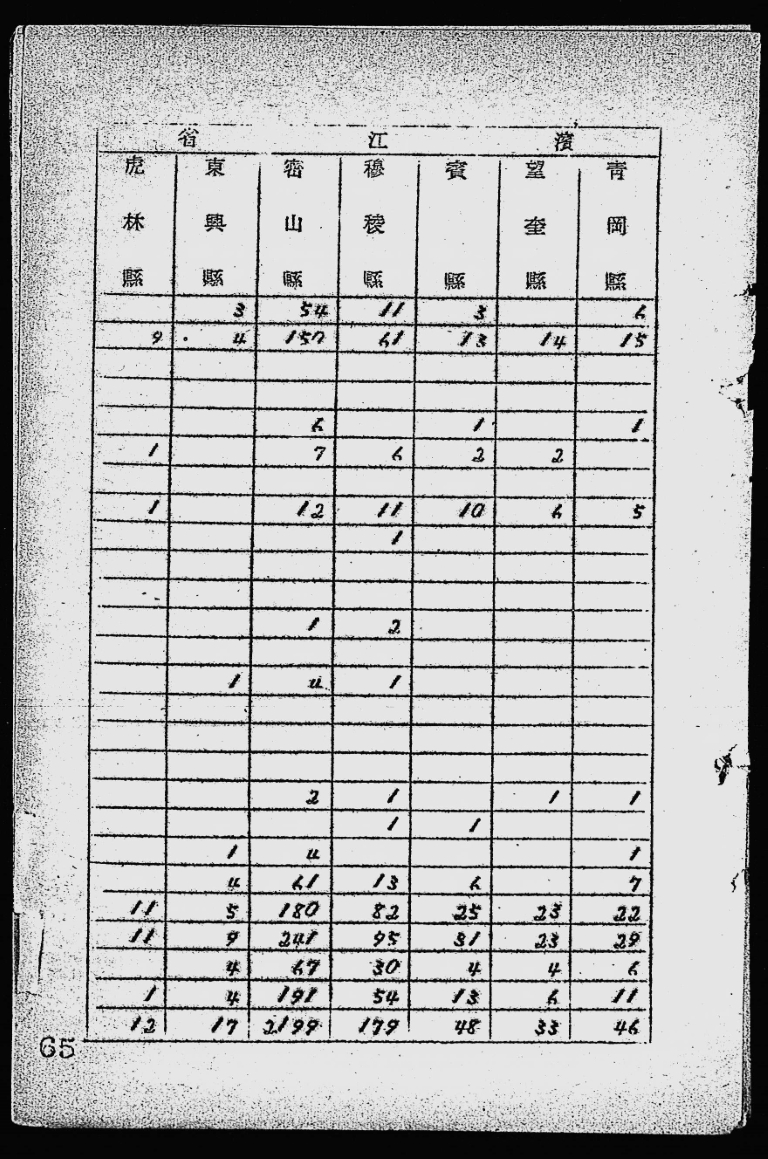 濱江省
青岡縣 望奎縣 賓縣 穆稜縣 密山縣 東興縣 虎林縣
3 54 11 3 6
9 4 157 61 13 14 15
6 1 1
1 7 6 2 2
1 12 11 10 6 5
1
1 2
1 4 1
2 1 1 1
1 1
1 4 1
4 61 13 6 7
11 5 180 82 25 23 22
11 9 241 95 31 23 29
4 67 30 4 4 6
1 4 191 54 13 6 11
12 17 2199 179 48 33 46
65